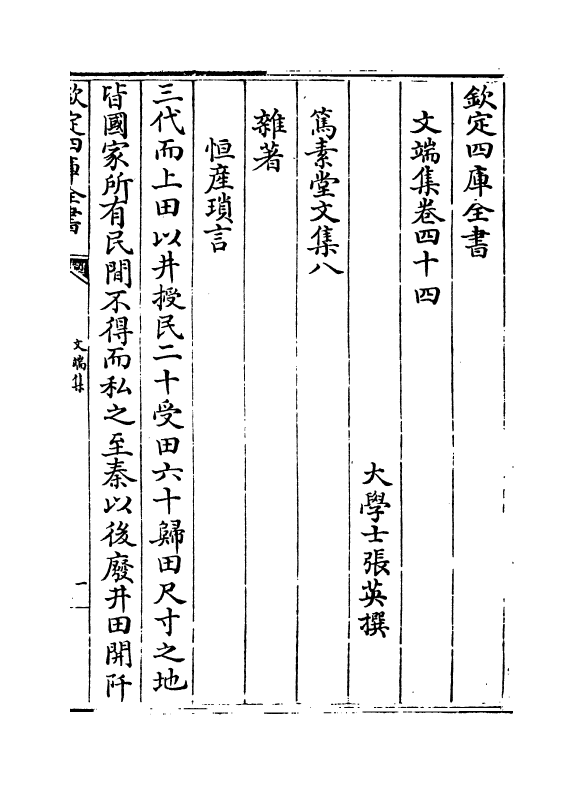 欽定四庫全書
文端集卷四十四
大學士張英撰
篤素堂文集八
雜著
恒産瑣言
三代而上田以井授民二十受田六十歸田尺寸之地
皆國家所有民間不得而私之至秦以後廢井田開阡
欽定四庫全書
文端集
一